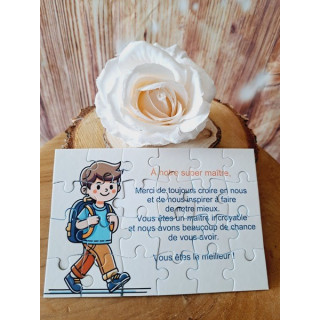 A notre super maître,
Merci de toujours croire en nous
et de nous inspirer à faire
de notre mieux.
Vous êtes un maître incroyable
et nous avons beaucoup de chance
de vous avoir.
Vous êtes le meilleur !